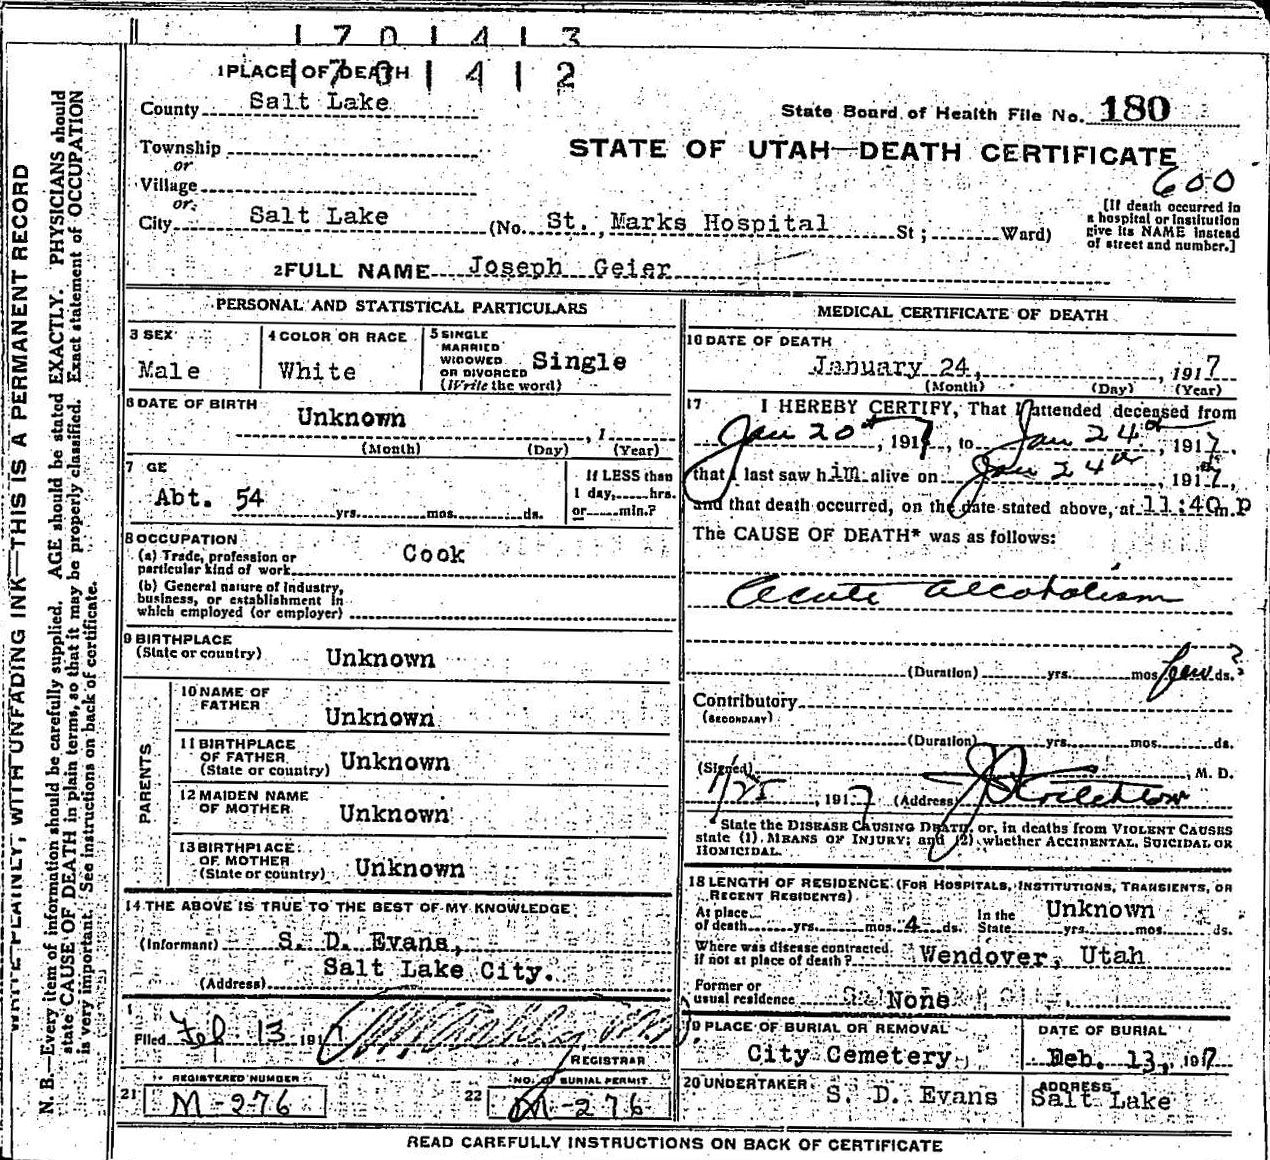 1 7 0 1 4 1 3
1 7 0 1 4 1 2
1 PLACE OF DEATH
County Salt Lake
State Board of Health File No. 180
Township
or
STATE OF UTAH—DEATH CERTIFICATE
Village
or
600
City Salt Lake (No. St. Marks Hospital St ; Ward)
[If death occurred in
a hospital or institution
give its NAME instead
of street and number.]
2 FULL NAME Joseph Geier
PERSONAL AND STATISTICAL PARTICULARS
3 SEX
Male
4 COLOR OR RACE
White
5 SINGLE
MARRIED
WIDOWED
OR DIVORCED
(Write the word)
Single
6 DATE OF BIRTH
Unknown
, 1
(Month) (Day) (Year)
7 GE
Abt. 54
yrs. mos. ds.
If LESS than
1 day, hrs.
or min.?
8 OCCUPATION
(a) Trade, profession or
particular kind of work Cook
(b) General nature of industry,
business, or establishment in
which employed (or employer)
9 BIRTHPLACE
(State or country) Unknown
PARENTS
10 NAME OF
FATHER
Unknown
11 BIRTHPLACE
OF FATHER
(State or country) Unknown
12 MAIDEN NAME
OF MOTHER Unknown
13 BIRTHPLACE
OF MOTHER
(State or country) Unknown
14 THE ABOVE IS TRUE TO THE BEST OF MY KNOWLEDGE
(Informant) S. D. Evans,
(Address) Salt Lake City.
Filed Feb 13 1917
REGISTRAR
REGISTERED NUMBER
21 M-276
NO. OF BURIAL PERMIT
22 M-276
MEDICAL CERTIFICATE OF DEATH
16 DATE OF DEATH
January 24, , 1917
(Month) (Day) (Year)
17 I HEREBY CERTIFY, That I attended deceased from
Jan 20th , 1917, to Jan 24th , 1917,
that I last saw him alive on Jan 24th , 1917,
and that death occurred, on the date stated above, at 11:40 m. P
The CAUSE OF DEATH* was as follows:
Acute alcoholism
(Duration) yrs. mos. few ds.?
Contributory
(SECONDARY)
(Duration) yrs. mos. ds.
(Signed) , M. D.
1/25 , 1917 (Address)
State the DISEASE CAUSING DEATH, or, in deaths from VIOLENT CAUSES
state (1) MEANS OF INJURY; and (2) whether ACCIDENTAL, SUICIDAL OR
HOMICIDAL.
18 LENGTH OF RESIDENCE (FOR HOSPITALS, INSTITUTIONS, TRANSIENTS, OR
RECENT RESIDENTS)
At place
of death yrs. mos. 4 ds.
In the
State Unknown yrs. mos. ds.
Where was disease contracted
if not at place of death? Wendover, Utah
Former or
usual residence None
19 PLACE OF BURIAL OR REMOVAL
City Cemetery
DATE OF BURIAL
Feb. 13, 1917
20 UNDERTAKER
S. D. Evans
ADDRESS
Salt Lake
READ CAREFULLY INSTRUCTIONS ON BACK OF CERTIFICATE
WRITE PLAINLY, WITH UNFADING INK—THIS IS A PERMANENT RECORD
N. B.—Every item of information should be carefully supplied. AGE should be stated EXACTLY. PHYSICIANS should
state CAUSE OF DEATH in plain terms, so that it may be properly classified. Exact statement of OCCUPATION
is very important. See instructions on back of certificate.